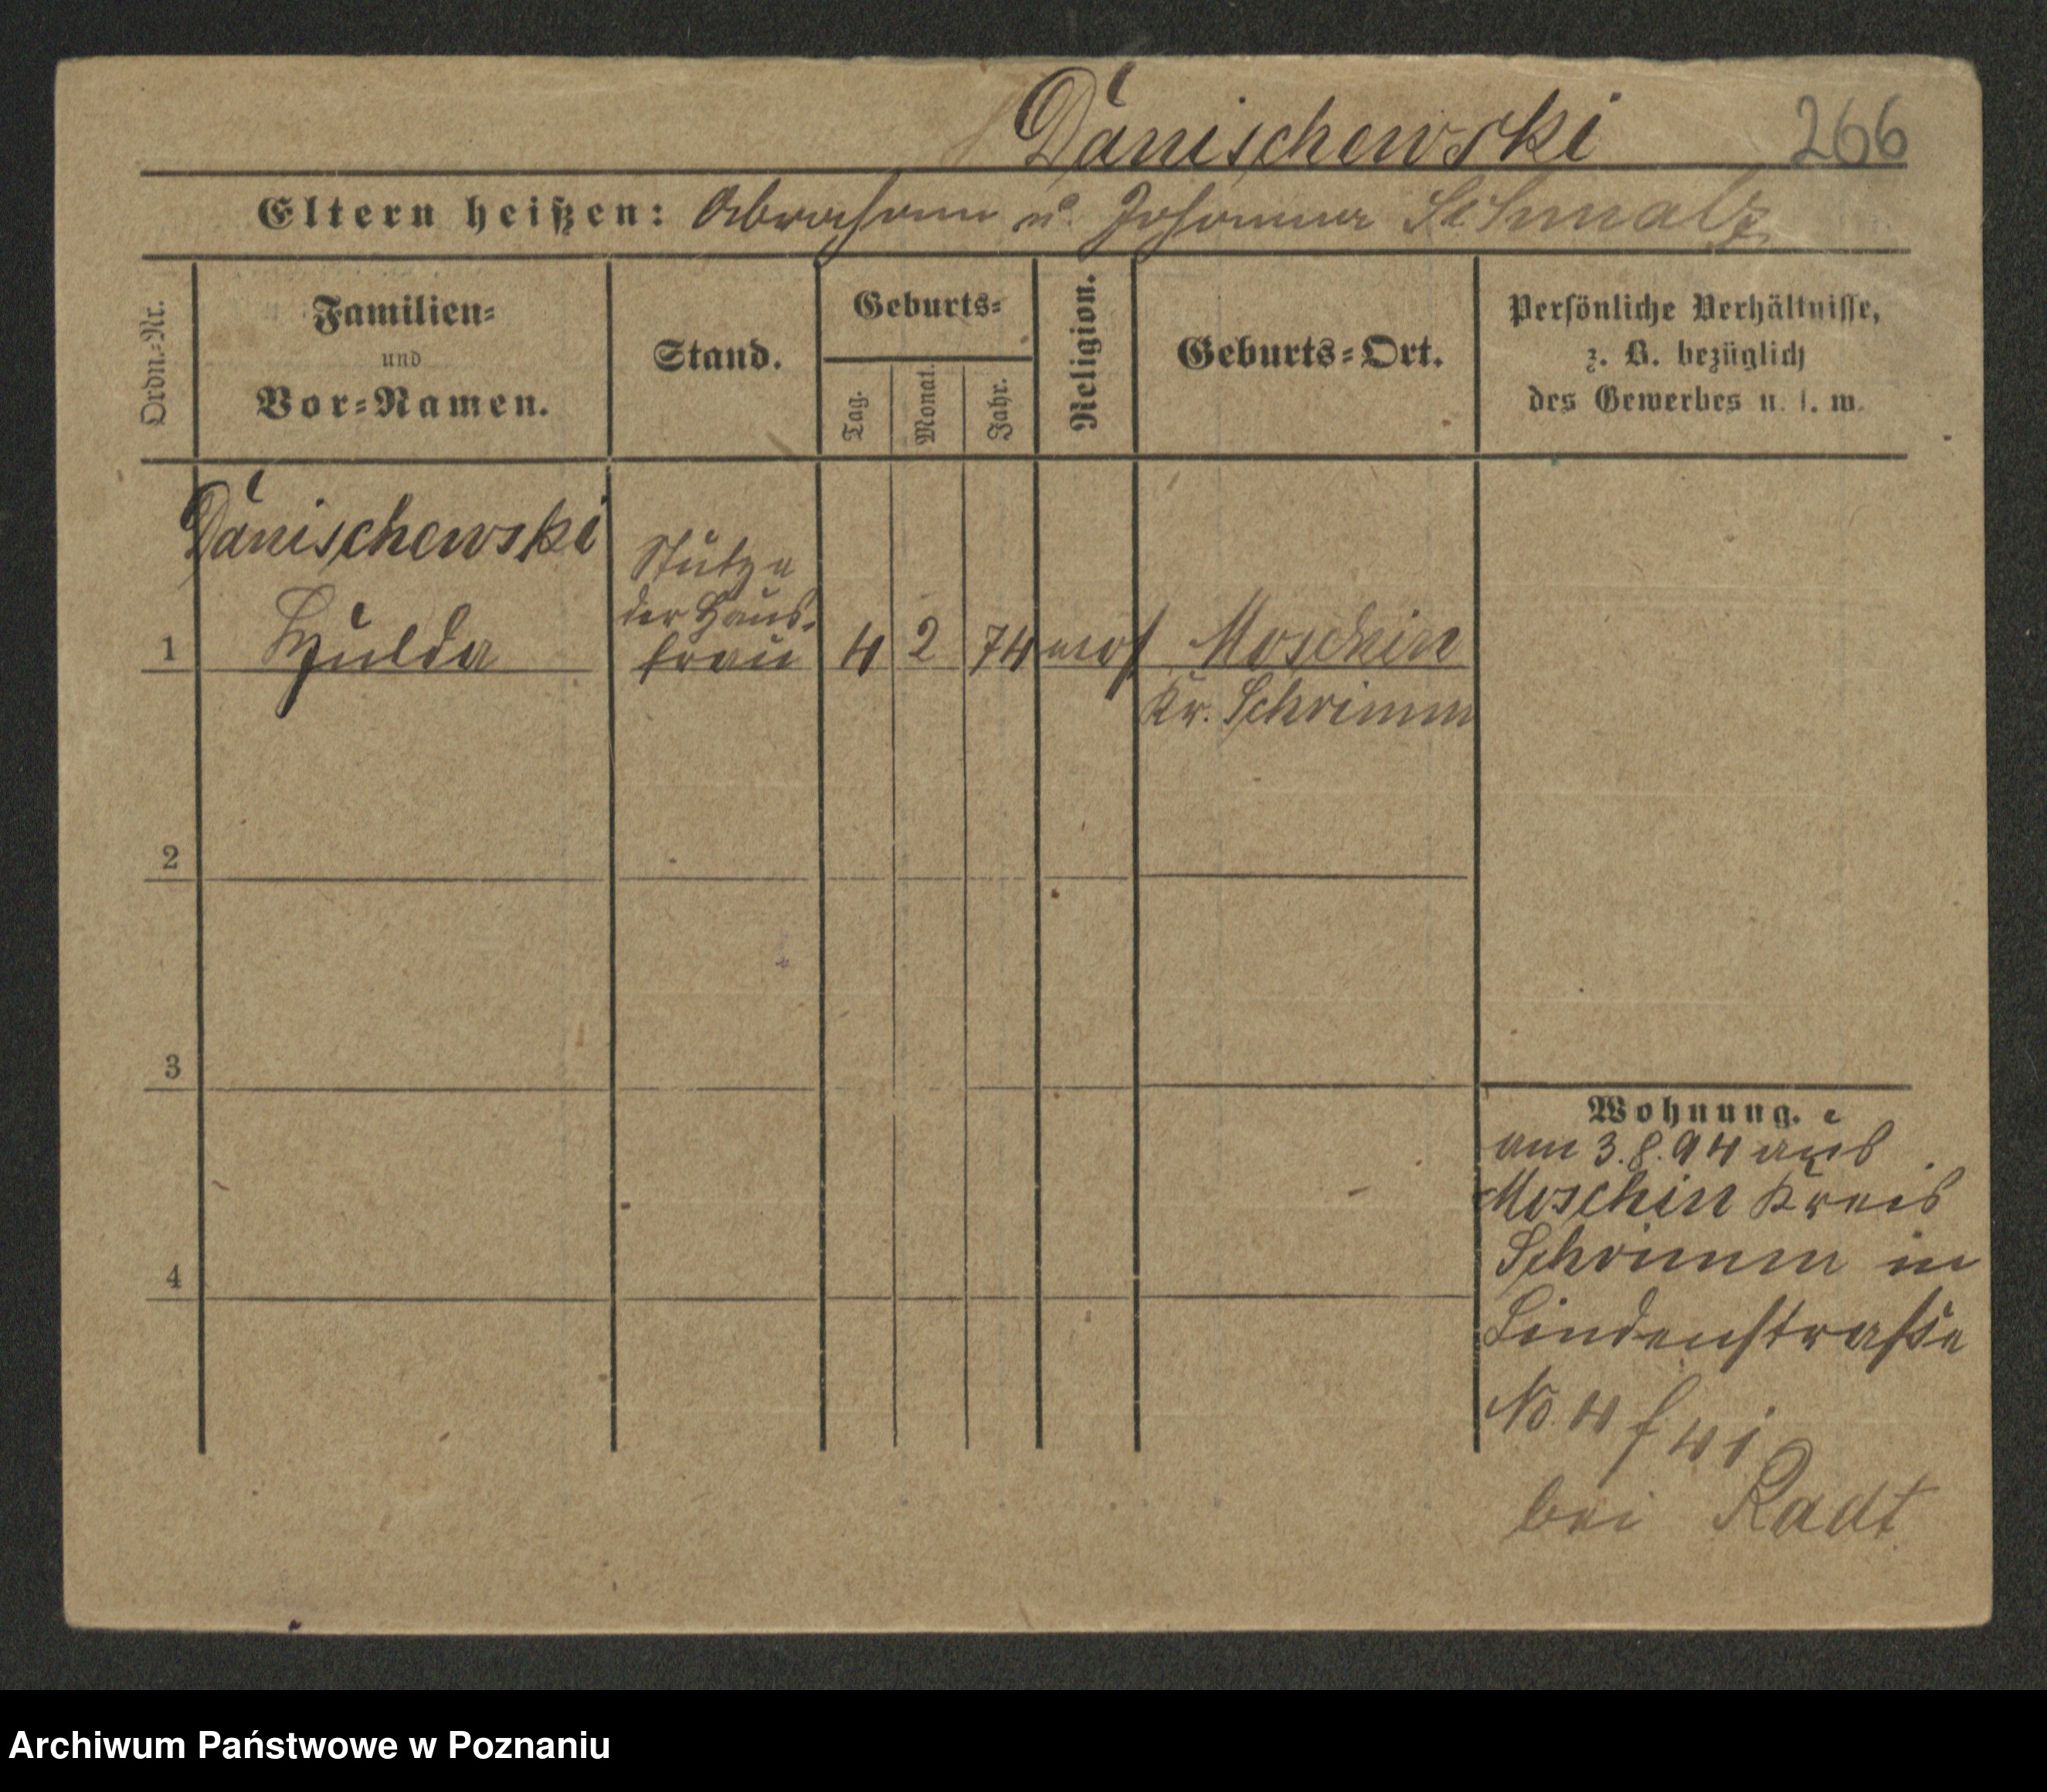 Dänischewski 266
Eltern heißen: Abraham u. Johanna Schmalz
Ordn.-Nr.
Familien-
und
Vor-Namen.
Stand.
Geburts-
Tag.
Monat.
Jahr.
Religion.
Geburts-Ort.
Persönliche Verhältnisse,
z. B. bezüglich
des Gewerbes u. s. w.
Dänischewski
Stütze
der Haus-
1 Hulda frau 4 2 74 mos Moschin
Kr. Schrimm
2
3
4
Wohnung.
am 3.8.94 aus
Moschin Kreis
Schrimm in
Lindenstraße
No 4
bei Radt
Archiwum Państwowe w Poznaniu